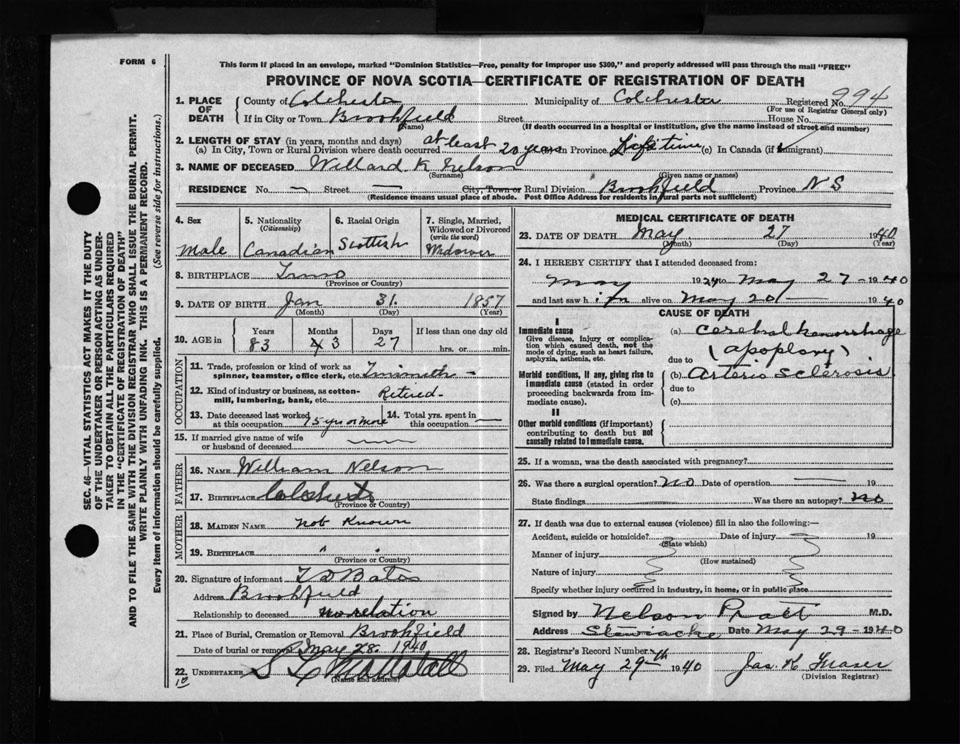 FORM 6
This form if placed in an envelope, marked "Dominion Statistics—Free, penalty for improper use $300," and properly addressed will pass through the mail "FREE"
PROVINCE OF NOVA SCOTIA—CERTIFICATE OF REGISTRATION OF DEATH
1. PLACE OF DEATH County of Colchester Municipality of Colchester Registered No. 994
(For use of Registrar General only)
If in City or Town Brookfield Street House No.
(Name) (If death occurred in a hospital or institution, give the name instead of street and number)
2. LENGTH OF STAY (in years, months and days)
(a) In City, Town or Rural Division where death occurred at least 20 years In Province Lifetime (c) In Canada (if immigrant)
3. NAME OF DECEASED Willard K Nelson
(Surname) (Given name or names)
RESIDENCE No. — Street — City, Town or Rural Division Brookfield Province N S
(Residence means usual place of abode. Post Office Address for residents in rural parts not sufficient)
4. Sex 5. Nationality 6. Racial Origin 7. Single, Married, Widowed or Divorced
(Citizenship) (write the word)
Male Canadian Scottish Widower
8. BIRTHPLACE
(Province or Country)
9. DATE OF BIRTH Jan 31 1857
(Month) (Day) (Year)
10. AGE in Years Months Days If less than one day old
83 3 27 hrs. or min.
OCCUPATION
11. Trade, profession or kind of work as spinner, teamster, office clerk, etc. Tinsmith —
12. Kind of industry or business, as cotton-mill, lumbering, bank, etc. Retired —
13. Date deceased last worked at this occupation 15 yrs or more 14. Total yrs. spent in this occupation —
15. If married give name of wife or husband of deceased
FATHER
16. NAME William Nelson
17. BIRTHPLACE Colchester
(Province or Country)
MOTHER
18. MAIDEN NAME not Known
19. BIRTHPLACE " "
(Province or Country)
20. Signature of informant
Address Brookfield
Relationship to deceased no relation
21. Place of Burial, Cremation or Removal Brookfield
Date of burial or removal May 28. 1940
22. UNDERTAKER
(Name and address)
MEDICAL CERTIFICATE OF DEATH
23. DATE OF DEATH May 27 1940
(Month) (Day) (Year)
24. I HEREBY CERTIFY that I attended deceased from:
May 19 to May 27 - 1940
and last saw him alive on May 20 — 1940
CAUSE OF DEATH
I
Immediate cause
Give disease, injury or complication which caused death, not the mode of dying, such as heart failure, asphyxia, asthenia, etc.
(a) cerebral hemorrhage
(apoplexy)
due to
Morbid conditions, if any, giving rise to immediate cause (stated in order proceeding backwards from immediate cause).
(b) Arterio Sclerosis
due to
(c)
II
Other morbid conditions (if important) contributing to death but not causally related to immediate cause.
25. If a woman, was the death associated with pregnancy?
26. Was there a surgical operation? No Date of operation — 19
State findings Was there an autopsy? No
27. If death was due to external causes (violence) fill in also the following:—
Accident, suicide or homicide? Date of injury 19
(State which)
Manner of injury
(How sustained)
Nature of injury
Specify whether injury occurred in industry, in home, or in public place
Signed by Nelson Pratt M.D.
Address Stewiacke Date May 29 - 1940
28. Registrar's Record Number
29. Filed May 29th 1940 Jas. K Fraser
(Division Registrar)
SEC. 46—VITAL STATISTICS ACT MAKES IT THE DUTY
OF THE UNDERTAKER OR PERSON ACTING AS UNDER-
TAKER TO OBTAIN ALL THE PARTICULARS REQUIRED
IN THE "CERTIFICATE OF REGISTRATION OF DEATH"
AND TO FILE THE SAME WITH THE DIVISION REGISTRAR WHO SHALL ISSUE THE BURIAL PERMIT.
WRITE PLAINLY WITH UNFADING INK. THIS IS A PERMANENT RECORD.
Every item of information should be carefully supplied. (See reverse side for instructions.)